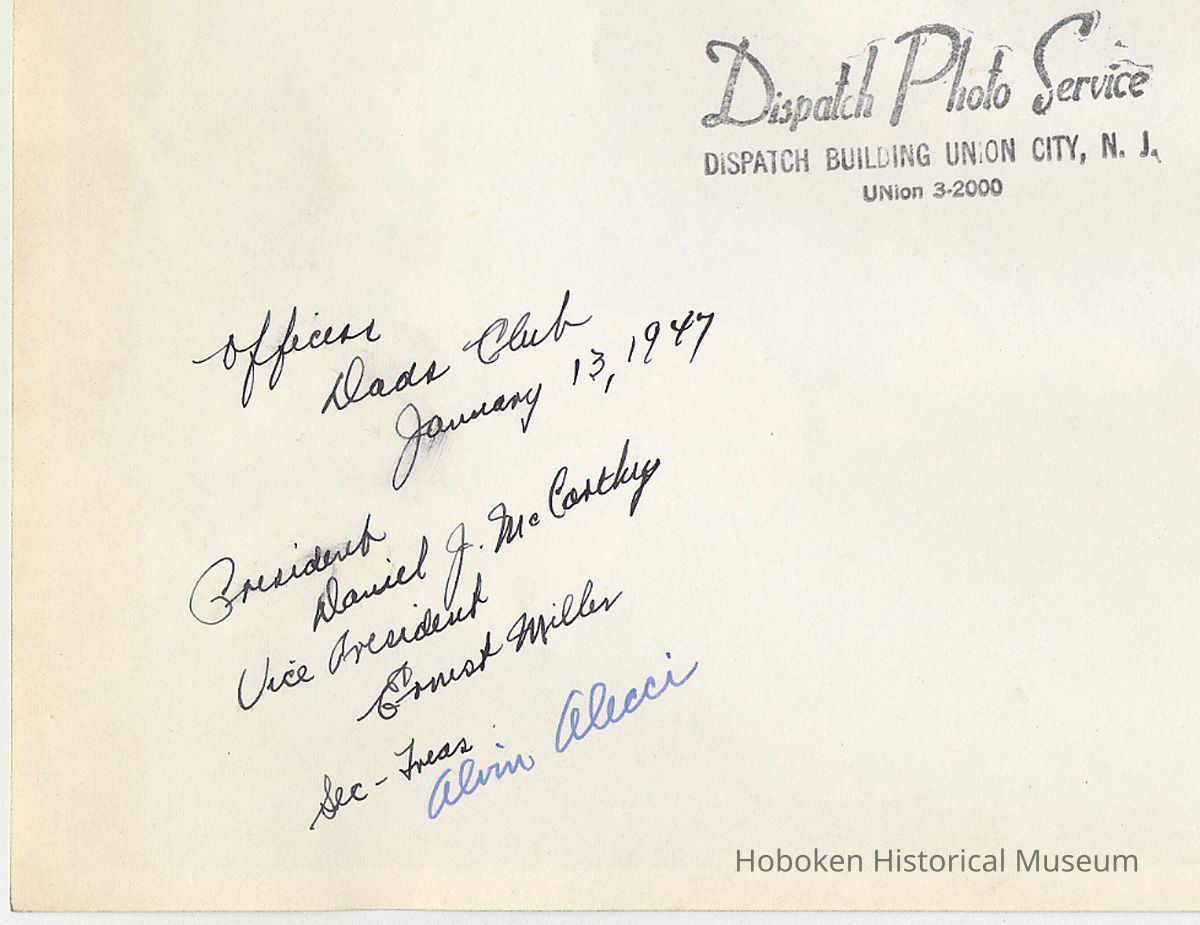 Dispatch Photo Service
DISPATCH BUILDING UNION CITY, N. J.
UNion 3-2000
Officers
Dads Club
January 13, 1947
President
Daniel J. McCarthy
Vice President
Ernest Miller
Sec - Treas
Alvin Alecci
Hoboken Historical Museum